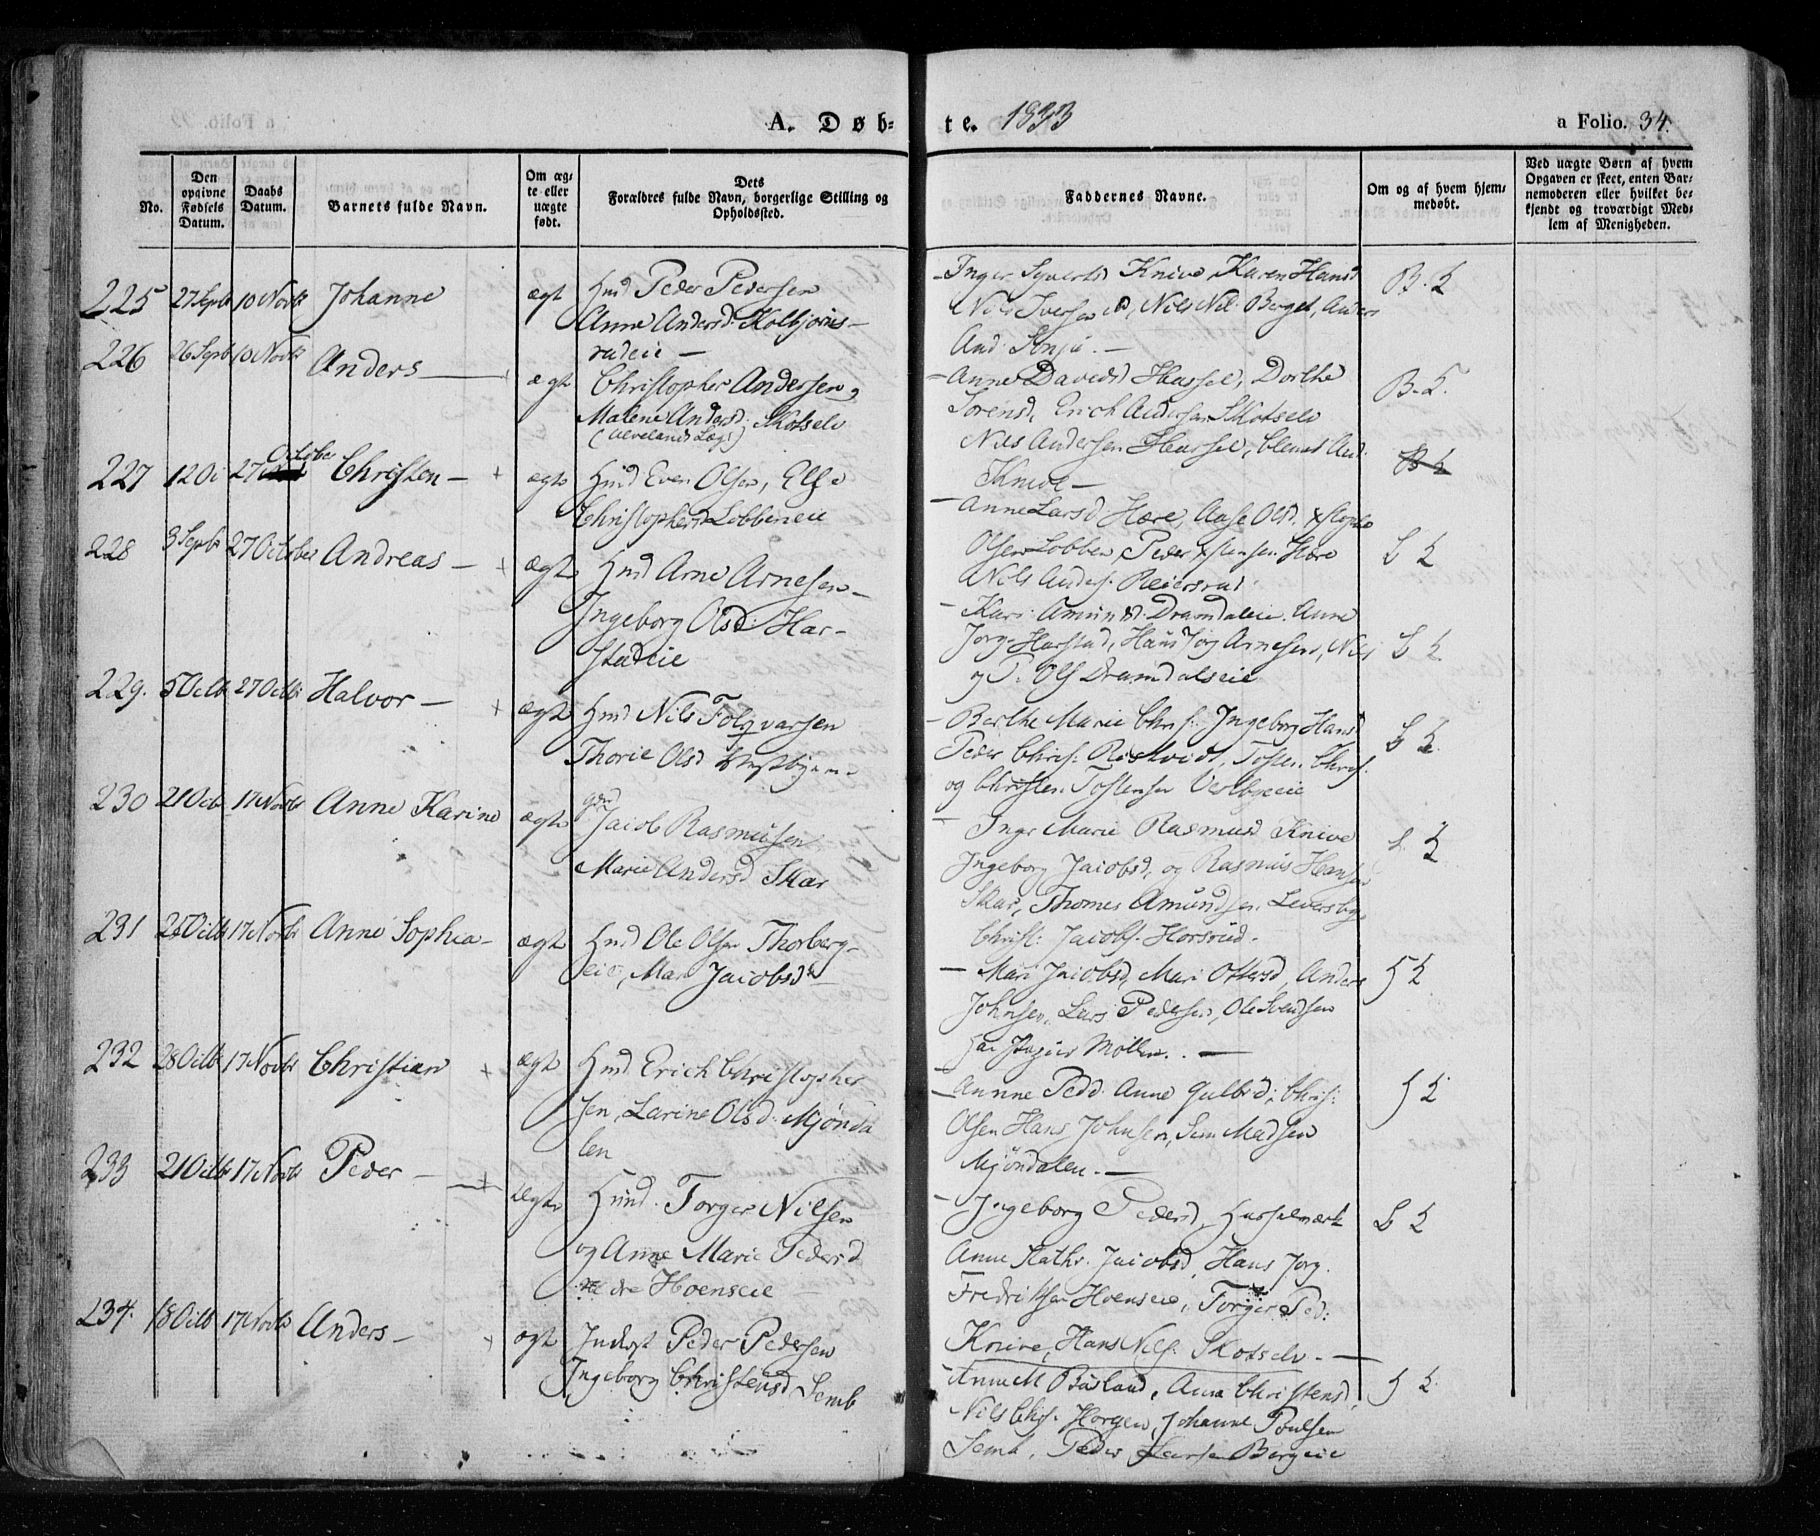 A. Døb- te. 1833
a Folio. 34.
No.
Den opgivne Fødsels Datum.
Daabs Datum.
Barnets fulde Navn.
Om ægte eller uægte født.
Dets Forældres fulde Navn, borgerlige Stilling og Opholdssted.
Faddernes Navne.
Om og af hvem hjemmedøbt.
Ved uægte Børn af hvem Opgaven er skeet, enten Barnemoderen eller hvilket bekjendt og troværdigt Medlem af Menigheden.
225 27 Septb 10 Novb Johanne ægt Huusmd Peder Pedersen
Anne Andersd. Kolbjørns-
rudeie —
Inger Syvertsd Knive, Karen Hansd
Nils Iversen, Nils Nil. Berget, Anders
And: Sønju. —
226 26 Septb 10 Novb Anders — ægt Christopher Andersen,
Malene Andersd. Skotselv
Anne Davidsd Hassel, Dorthe
Sørensd, Erich Andersen Skotselv
Nils Andersen Hassel, Clemet And.
Knive —
227 12 O 27 October Christen — ægt Hmd Even Olsen, Else
Christophersd Lobbeneie
Anne Larsd Hære, Aase Olsd. Xstophe
Olsen Lobben, Peder Xstensen Hære
Nils Anders. Reiersrud.
228 3 Septb 27 October Andreas — ægt Hmd Arne Arnesen
Ingeborg Olsd. Har-
stadeie
Kari Amundsd. Dramdaleie. Anne
Jorg. Harstad, Hans Jørg Arnesen, Nils
og P. Ols Dramdalseie
229. 5 Octb 27 Octb Halvor — ægt Hmd Nils Folqvarsen
Thorie Olsd
Berthe Marie Chrs. Ingeborg Hansd
Peder Chris: Tosten Chris.
og Christen Tostensen
230 21 Oct 17 Novb Anne Karine ægt Gmd Jacob Rasmusen
Marie Andersd Skar
Inger Marie Rasmusd Knive
Ingeborg Jacobsd, og Rasmus Hansen
Skar, Thomes Amundsen Leversby
Christ: Jacobs. Horsrud.
231 25 Octb 17 Novb Anne Sophia — ægt Hmd Ole Olsen Thorberg-
eie, Mari Jacobsd
— Mari Jacobsd, Mari Ottersd, Anders
Johnsen, Lars Pedersen, Ole Svendsen
Møllen. —
232 28 Octb 17 Novb Christian ægt Hmd Erich Christopher
sen, Larine Olsd. Mjønda
len
Annne Pedd. Anne Gulbrd; Chris:
Olsen Hans Johnsen, Sim Madsen
Mjøndalen. —
233 21 Octb 17 Novb Peder — ægte Huusmd. Torger Nilsen
og Anne Marie Pedersd
Hoenseie —
— Ingeborg Pedersd, Hasselværk
Anne Kathr. Jacobsd, Hans Jørg.
Fredriksen Hoenseie, Torger Ped:
Knive, Hans Nils. Skotselv. —
234. 18 Octb 17 Novb Anders — ægt Inderst Peder Pedersen
Ingeborg Christensd Semb
Anne M Buslaud, Anne Christensd,
Nils Chris. Horgen, Johanne Poulsen
Semb, Peder Larsen Bergeie